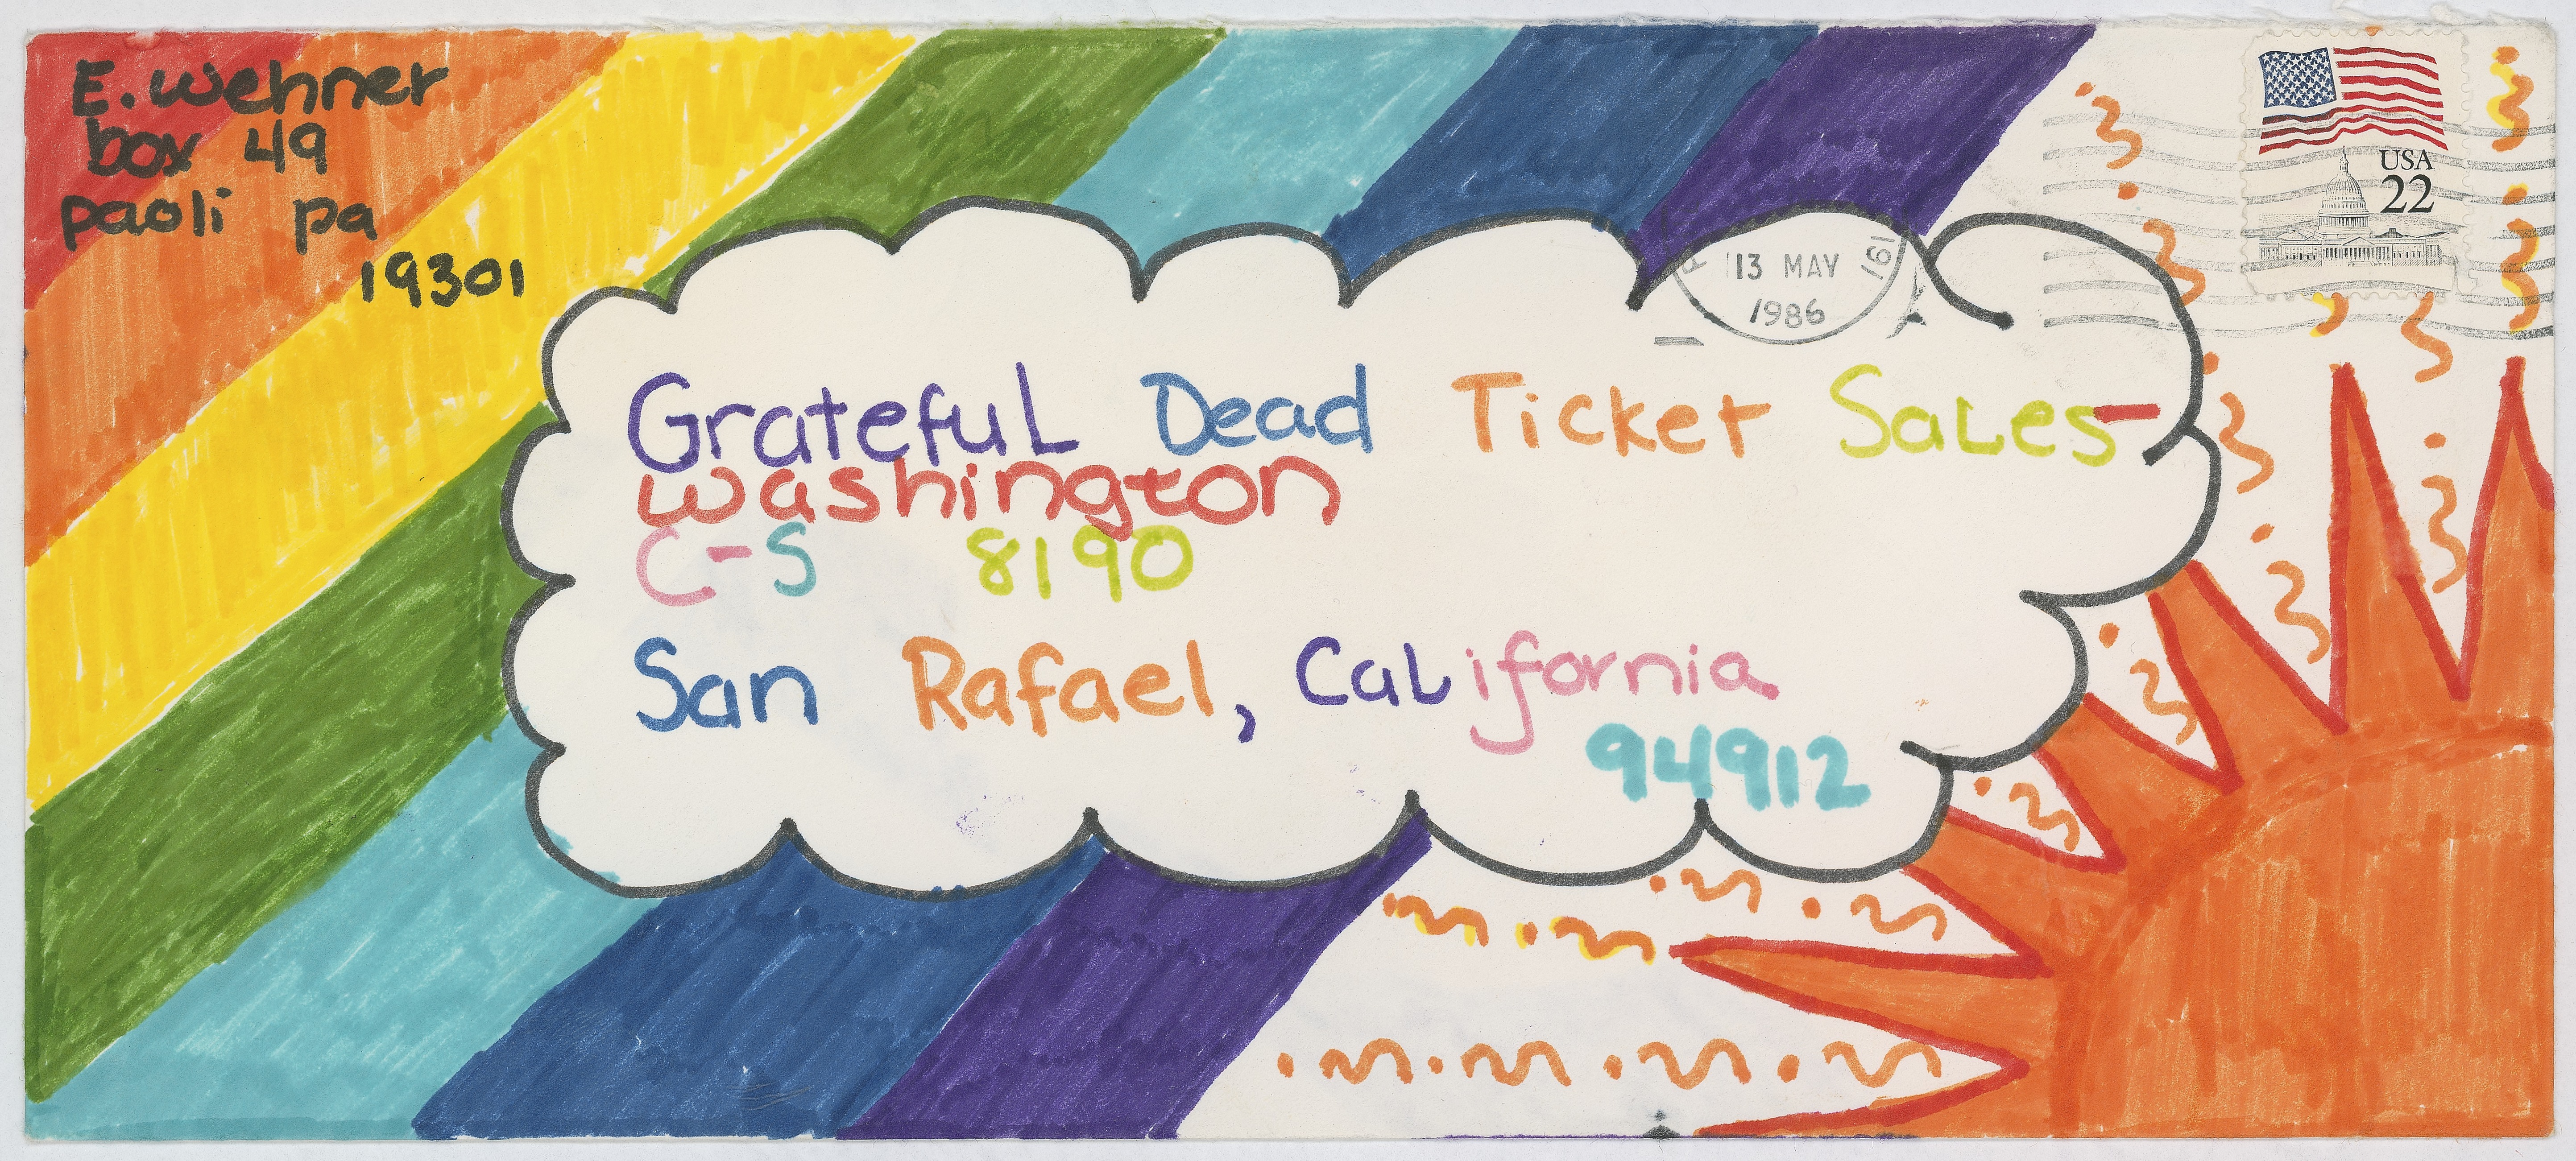 E. Wehner
box 49
paoli pa
19301
USA
22
13 MAY
1986
Grateful Dead Ticket Sales-
Washington
C-S 8190
San Rafael, California
94912